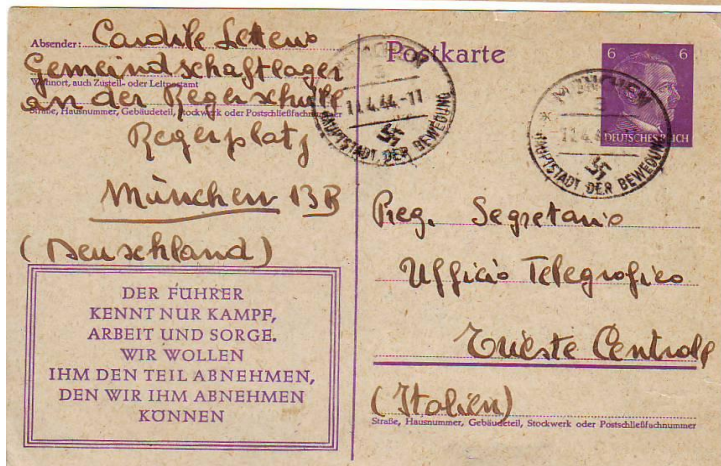 Absender: Cardile Letterio
Gemeindschaftlager
Wohnort, auch Zustell- oder Leitpostamt
an der Regerschule
Straße, Hausnummer, Gebäudeteil, Stockwerk oder Postschließfachnummer
Regerplatz
München 13B
(Deuschland)
DER FÜHRER
KENNT NUR KAMPF,
ARBEIT UND SORGE.
WIR WOLLEN
IHM DEN TEIL ABNEHMEN,
DEN WIR IHM ABNEHMEN
KÖNNEN
Postkarte
11.4.44.-11
HAUPTSTADT DER BEWEGUNG
6 6
DEUTSCHES REICH
MÜNCHEN
HAUPTSTADT DER BEWEGUNG
Preg. Segretario
Ufficio Telegrafico
Trieste Centrale
(Italien)
Straße, Hausnummer, Gebäudeteil, Stockwerk oder Postschließfachnummer